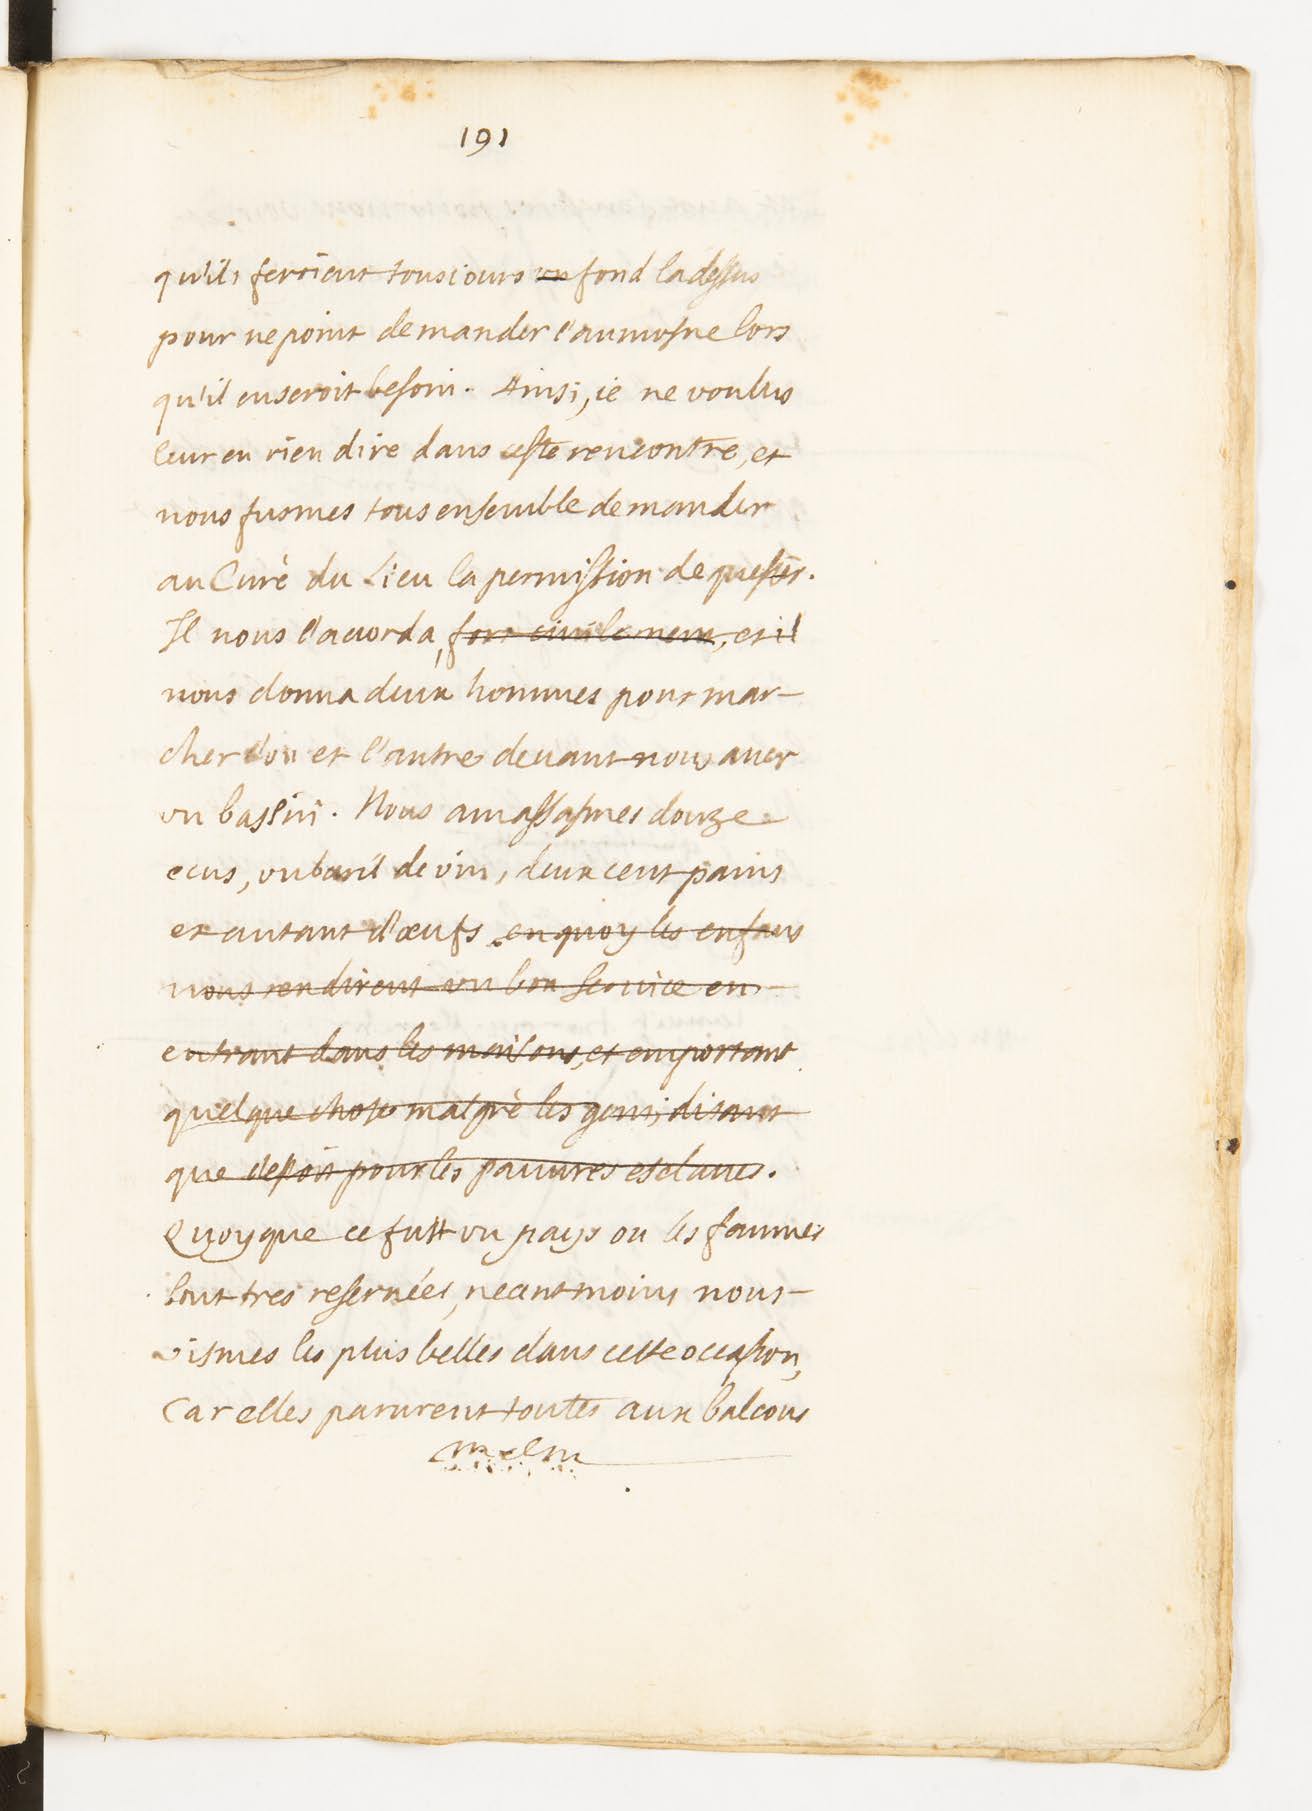 191
qu'ils feroient tousiours un fond ladessus
pour ne point demander l'aumosne lors
qu'il en seroit besoin. Ainsi, ie ne voulus
leur en rien dire dans ceste rencontre, et
nous fusmes tous ensemble demander
au Curè du Lieu la permission de quester.
Il nous l'acorda, fort ciuilement, et il
nous donna deux hommes pour mar-
cher l'un et l'autre deuant nous auec
vn bassin. Nous amassasmes douze
ecus, vn baril de vin, deux cent pains
et autant d'œufs en quoy les enfans
nous rendirent vn bon seruice en
entrant dans les maisons, et emportant
quelque chose malgrè les gens, disant
que c'estoit pour les pauures esclaues.
Quoyque ce fust vn pays ou les fammes
sont tres reseruées, neantmoins nous
vismes les plus belles dans cette occasion,
Car elles parurent toutes aux balcons